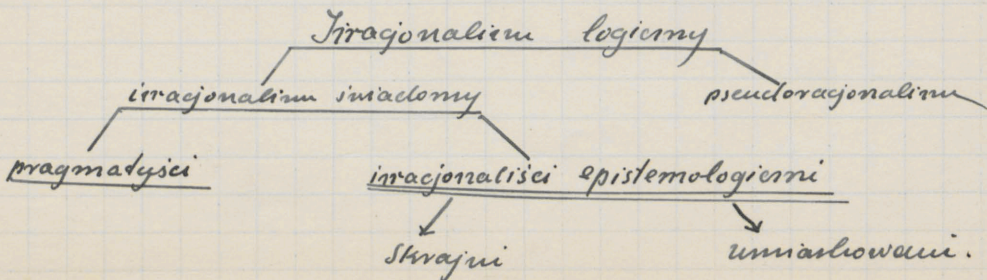 Irracjonalizm logiczny
irracjonalizm świadomy pseudoracjonalizm
pragmatyści irracjonaliści epistemologiczni
Skrajni umiarkowani.